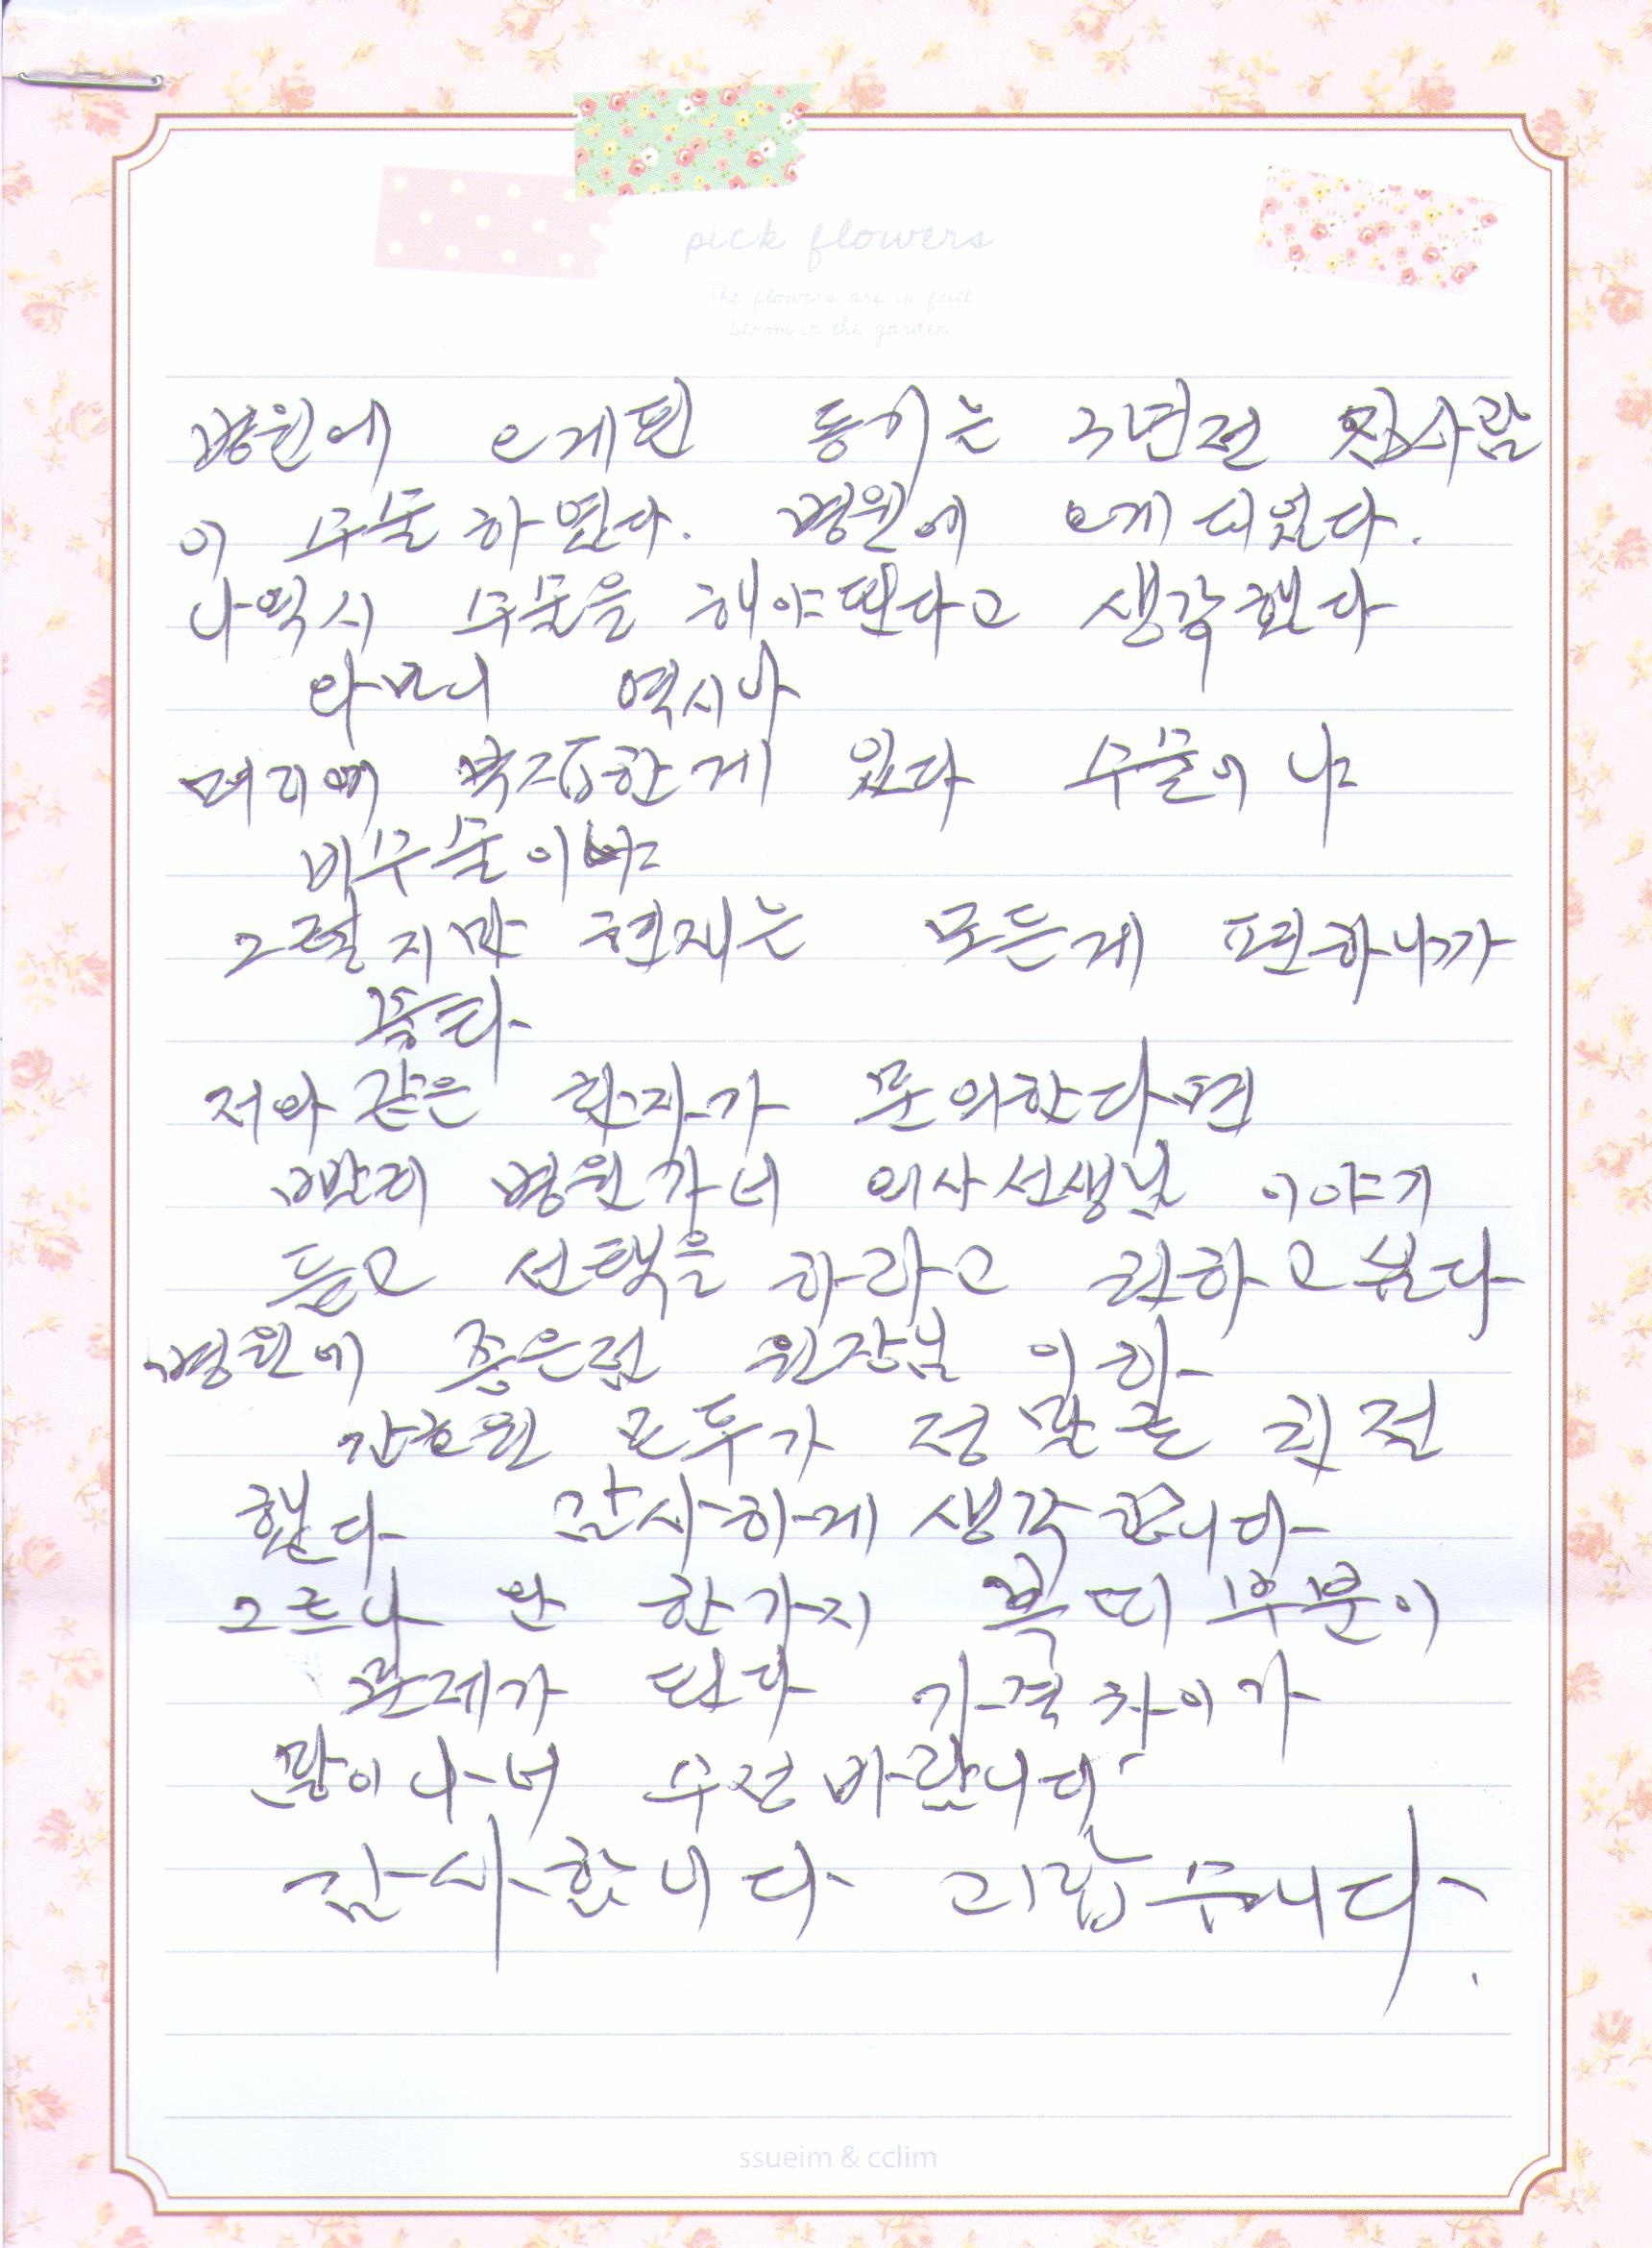 pick flowers
The flowers are in full
bloom in the garden
병원에 오게된 동기는 3년전 집사람
이 수술 하였다. 병원에 오게 되었다.
나역시 수술을 해야 된다고 생각했다
역시나
머리에 복잡한게 있다 수술이냐
비수술이냐
그렇지만 현재는 모든게 편하니까
좋다
저와 같은 환자가 문의한다면
빨리 병원가너 의사선생님 이야기
듣고 선택을 하라고 권하고 싶다
병원에 좋은점 원장님 이하
간호원 모두가 정말로 친절
했다 감사하게 생각합니다
한가지 복띠 부분이
문제가 된다 가격 차이가
많이 나너 수정 바랍니다
감사합니다 고맙습니다.
ssueim & cclim